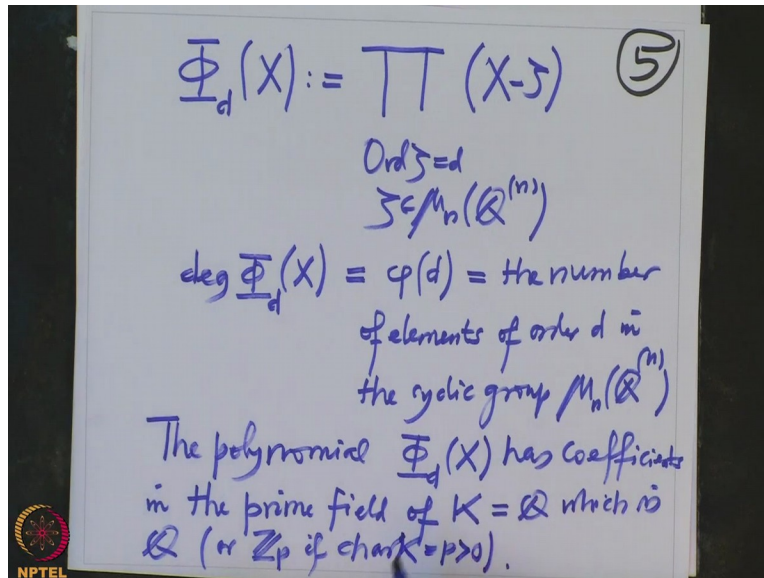 Φ_d(X) := ∏ (X-ζ)
5
Ord ζ = d
ζ ∈ μ_n(ℚ^(n))
deg Φ_d(X) = φ(d) = the number
of elements of order d in
the cyclic group μ_n(ℚ^(n))
The polynomial Φ_d(X) has coefficients
in the prime field of K = ℚ which is
ℚ (or ℤ_p if char K = p>0).
NPTEL